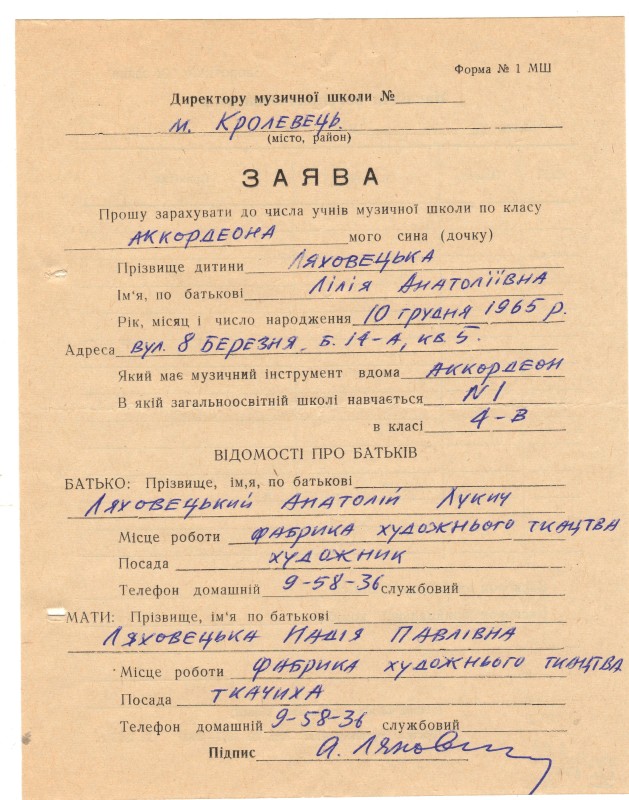 Форма № 1 МШ
Директору музичної школи №
м. Кролевець.
(місто, район)
ЗАЯВА
Прошу зарахувати до числа учнів музичної школи по класу
аккордеона мого сина (дочку)
Прізвище дитини Ляховецька
Ім'я, по батькові Лілія Анатоліївна
Рік, місяц і число народження 10 грудня 1965 р.
Адреса вул. 8 Березня, б. 14-А, кв 5.
Який має музичний інструмент вдома аккордеон
В якій загальноосвітній школі навчається N1
в класі 4-В
ВІДОМОСТІ ПРО БАТЬКІВ
БАТЬКО: Прізвище, ім,я, по батькові
Ляховецький Анатолій Лукич
Місце роботи фабрика художнього ткацтва
Посада художник
Телефон домашній 9-58-36 службовий
МАТИ: Прізвище, ім'я по батькові
Ляховецька Надія Павлівна
Місце роботи фабрика художнього ткацтва
Посада ткачиха
Телефон домашній 9-58-36 службовий
Підпис А. Ляхов